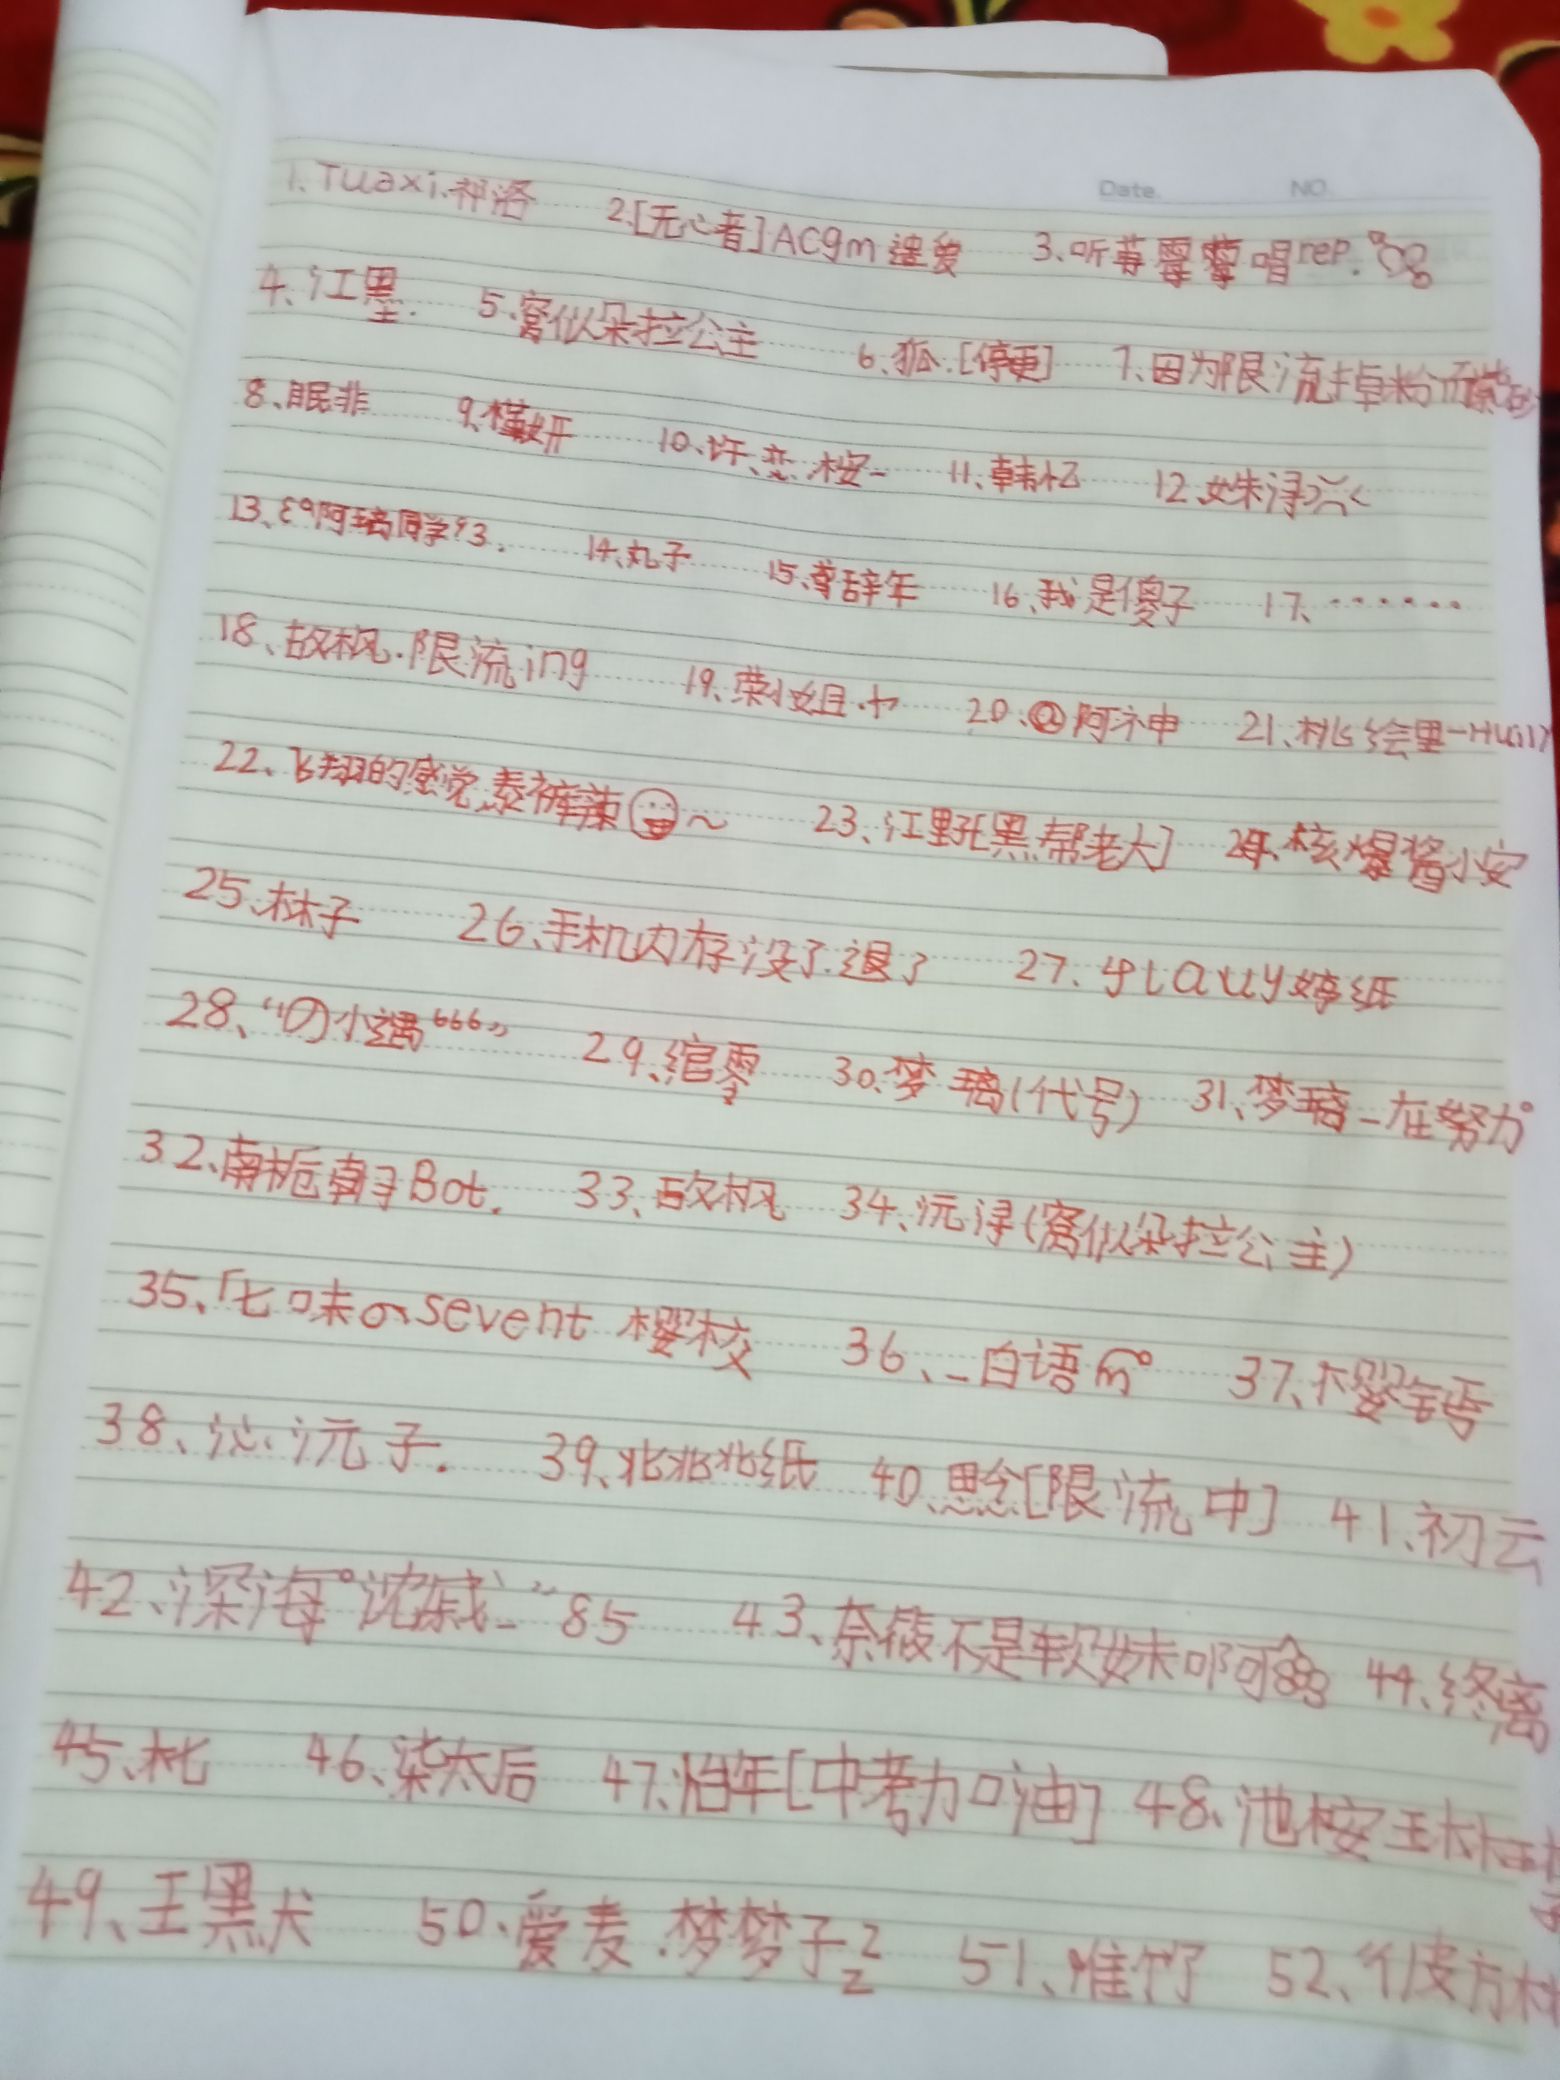 Date. NO.
1、Tuaxi.神洛 2.[无心者]ACgm 3、听莓霉莓唱rep.
4、江墨. 5、窝似朵拉公主 6、狐.[停更] 7、因为限流掉粉而
8、眠非 9、槿妍 10、许.恋.桉- 11、韩忆 12、姝浔
13、阿璃同学 14、丸子 15、辞年 16、我是傻子 17、……
18、故枫.限流ing 19、荣小姐.十 20、@阿神 21、桃绘里-Hu
22、飞翔的感觉,泰裤辣~ 23、江野[黑帮老大] 24、核爆酱小安
25、林子 26、手机内存没了.退了 27、婷纸
28、“の小璃666” 29、绾雯 30、梦璃(代号) 31、梦璃-在努力°
32、南栀Bot. 33、故枫 34、沅浔(窝似朵拉公主)
35、「七味のsevent 樱校 36、_白语 37、
38、沁沅子. 39、北北北纸 40、思念[限流中] 41、初云
42、深海°沈 85 43、奈筱不是软妹叩阿 44、终离
45、枇 46、柒太后 47、怡年[中考加油] 48、池桉
49、王黑犬 50、爱麦.梦梦子zz 51、惟竹 52、